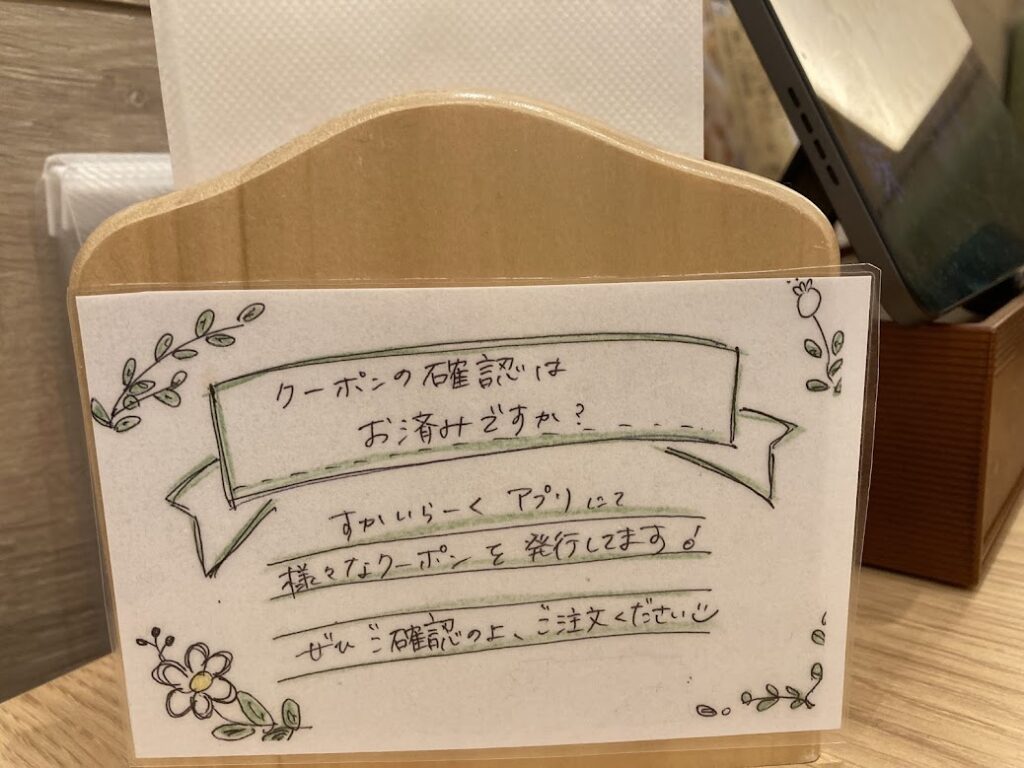 クーポンの確認は
お済みですか?
すかいらーく アプリにて
様々なクーポンを発行してます!
ぜひご確認の上、ご注文ください